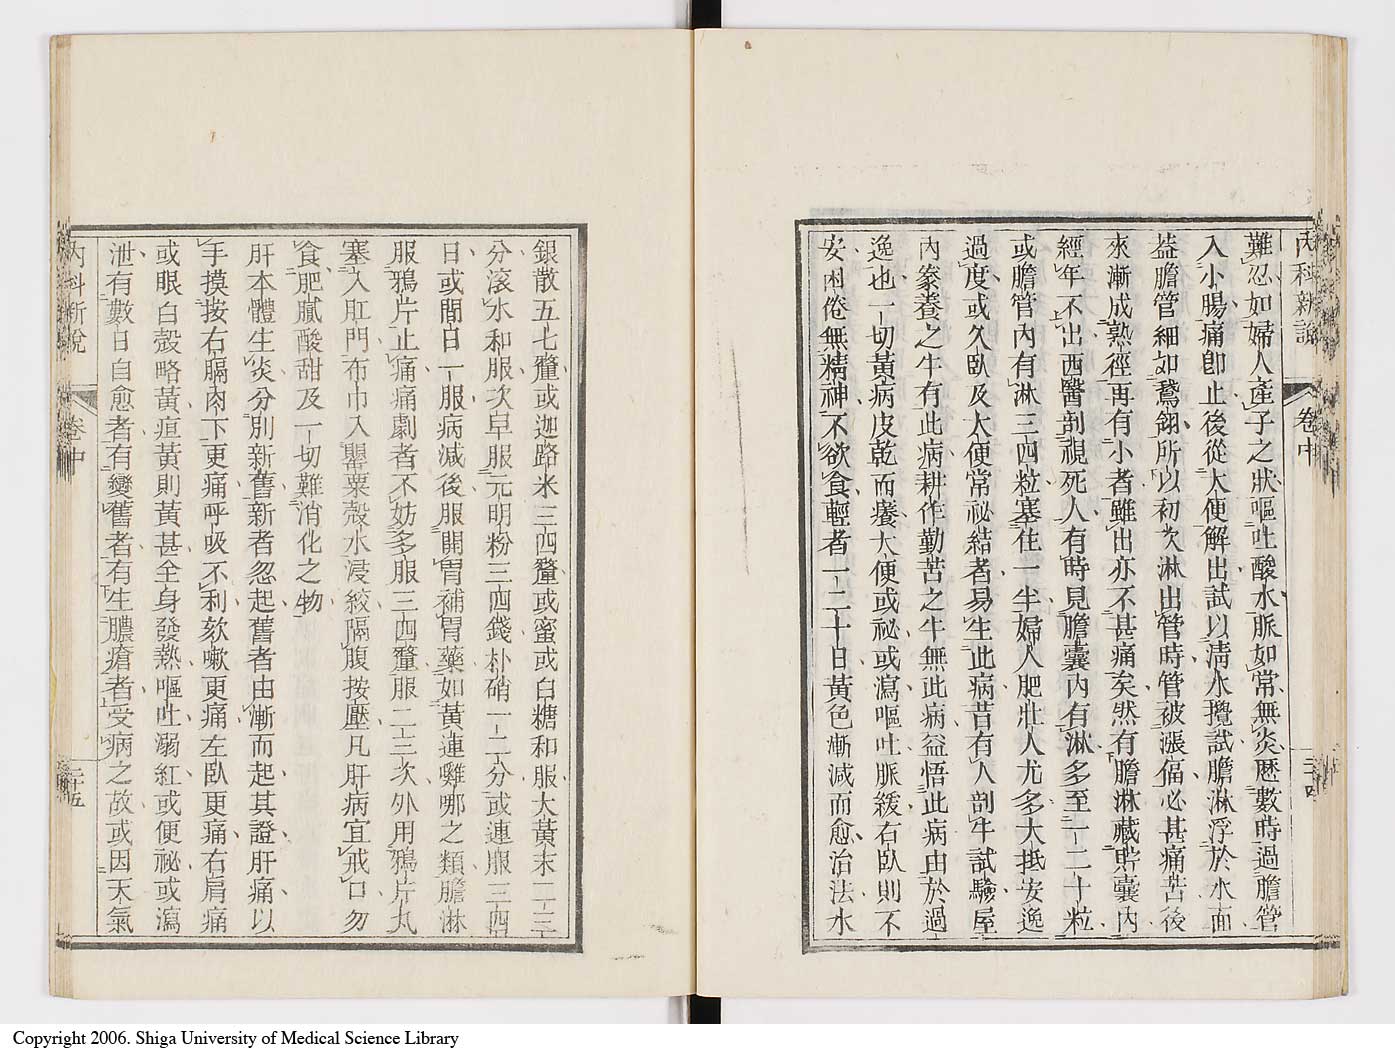 內科新說
卷中
難忍如婦人產子之狀嘔吐酸水脈如常無炎歷數時過膽管
入小腸痛卽止後從大便解出試以淸水攪試膽淋浮於水面
葢膽管細如鵞翎所以初次淋出管時管被漲偪必甚痛苦後
來漸成熟徑再有小者雖出亦不甚痛矣然有膽淋藏貯囊內
經年不出西醫剖視死人有時見膽囊內有淋多至一二十粒
或膽管內有淋三四粒塞住一半婦人肥壯人尤多大抵安逸
過度或久臥及大便常祕結者易生此病昔有人剖牛試驗屋
內豢養之牛有此病耕作勤苦之牛無此病益悟此病由於過
逸也一切黃病皮乾而癢大便或祕或瀉嘔吐脈緩右臥則不
安困倦無精神不欲食輕者一二十日黃色漸減而愈治法水
銀散五七釐或迦路米三四釐或蜜或白糖和服大黃末二三
分滾水和服次早服元明粉三四錢朴硝一二分或連服三四
日或間日一服病減後服開胃補胃藥如黃連雞哪之類膽淋
服鴉片止痛痛劇者不妨多服三四釐服二三次外用鴉片丸
塞入肛門布巾入罌粟殼水浸絞隔腹按壓凡肝病宜戒口勿
食肥膩酸甜及一切難消化之物
肝本體生炎分別新舊新者忽起舊者由漸而起其證肝痛以
手摸按右膈肉下更痛呼吸不利欬嗽更痛左臥更痛右肩痛
或眼白殼略黃疸黃則黃甚全身發熱嘔吐溺紅或便祕或瀉
泄有數日自愈者有變舊者有生膿瘡者受病之故或因天氣
內科新說
卷中
二十五
Copyright 2006. Shiga University of Medical Science Library